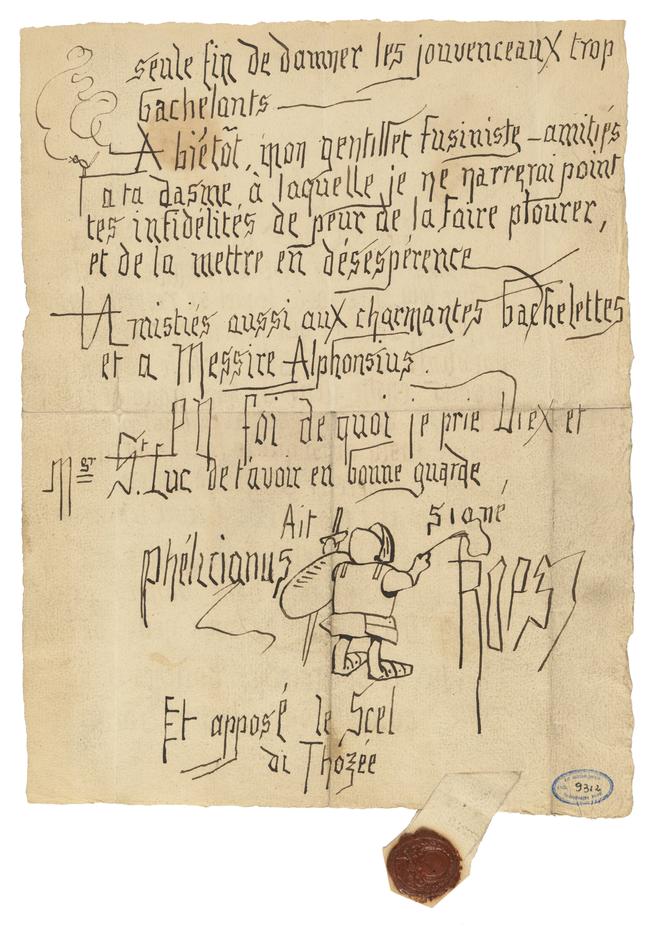 seule fin de damner les jouvenceaux trop
bachelants
A biétôt, mon gentillet fusiniste – amitiés
a ta dasme, à laquelle je ne narrerai point
tes infidélités de peur de la faire plourer,
et de la mettre en désespérence
Amistiés aussi aux charmantes bachelettes
et a Messire Alphonsius.
En foi de quoi je prie Diex et
Mgr St. Luc de t'avoir en bonne guarde
Ait signé
Phélicianus Rops
Et apposé le Scel
di Thozée
9312